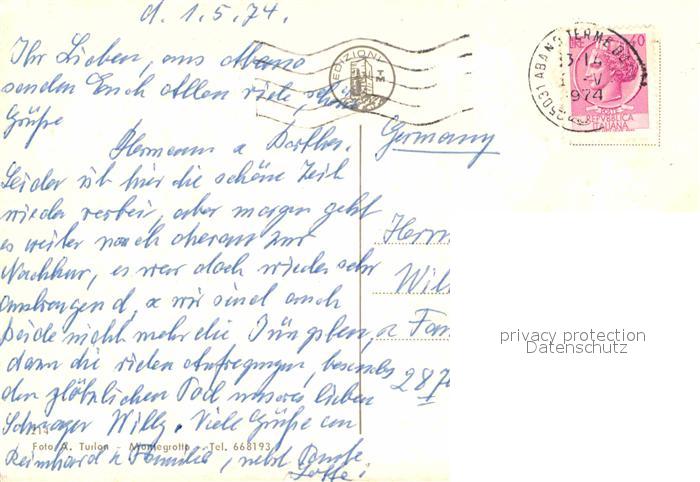 d. 1.5.74.
Ihr Lieben, aus Abano
senden Euch Allen viele, schöne
Grüße
Hermann u Dorthe.
Leider ist hier die schöne Zeit
wieder vorbei, aber morgen geht
es weiter nach Meran zur
Nachkur, es war doch wieder sehr
anstrengend, u wir sind auch
beide nicht mehr die Jüngsten,
dann die vielen Aufregungen, besonders
den plötzlichen Tod unseres lieben
Schwager Willy. Viele Grüße an
214
Foto A. Turlon - Montegrotto - Tel. 668193
Reinhard u Familie, nebst Tante
Lotte
EDIZIONI
35031 ABANO TERME
1974
LIRE 40
POSTE
REPVBBLICA
ITALIANA
Germany
Herrn
Will
u Fam
287
privacy protection
Datenschutz